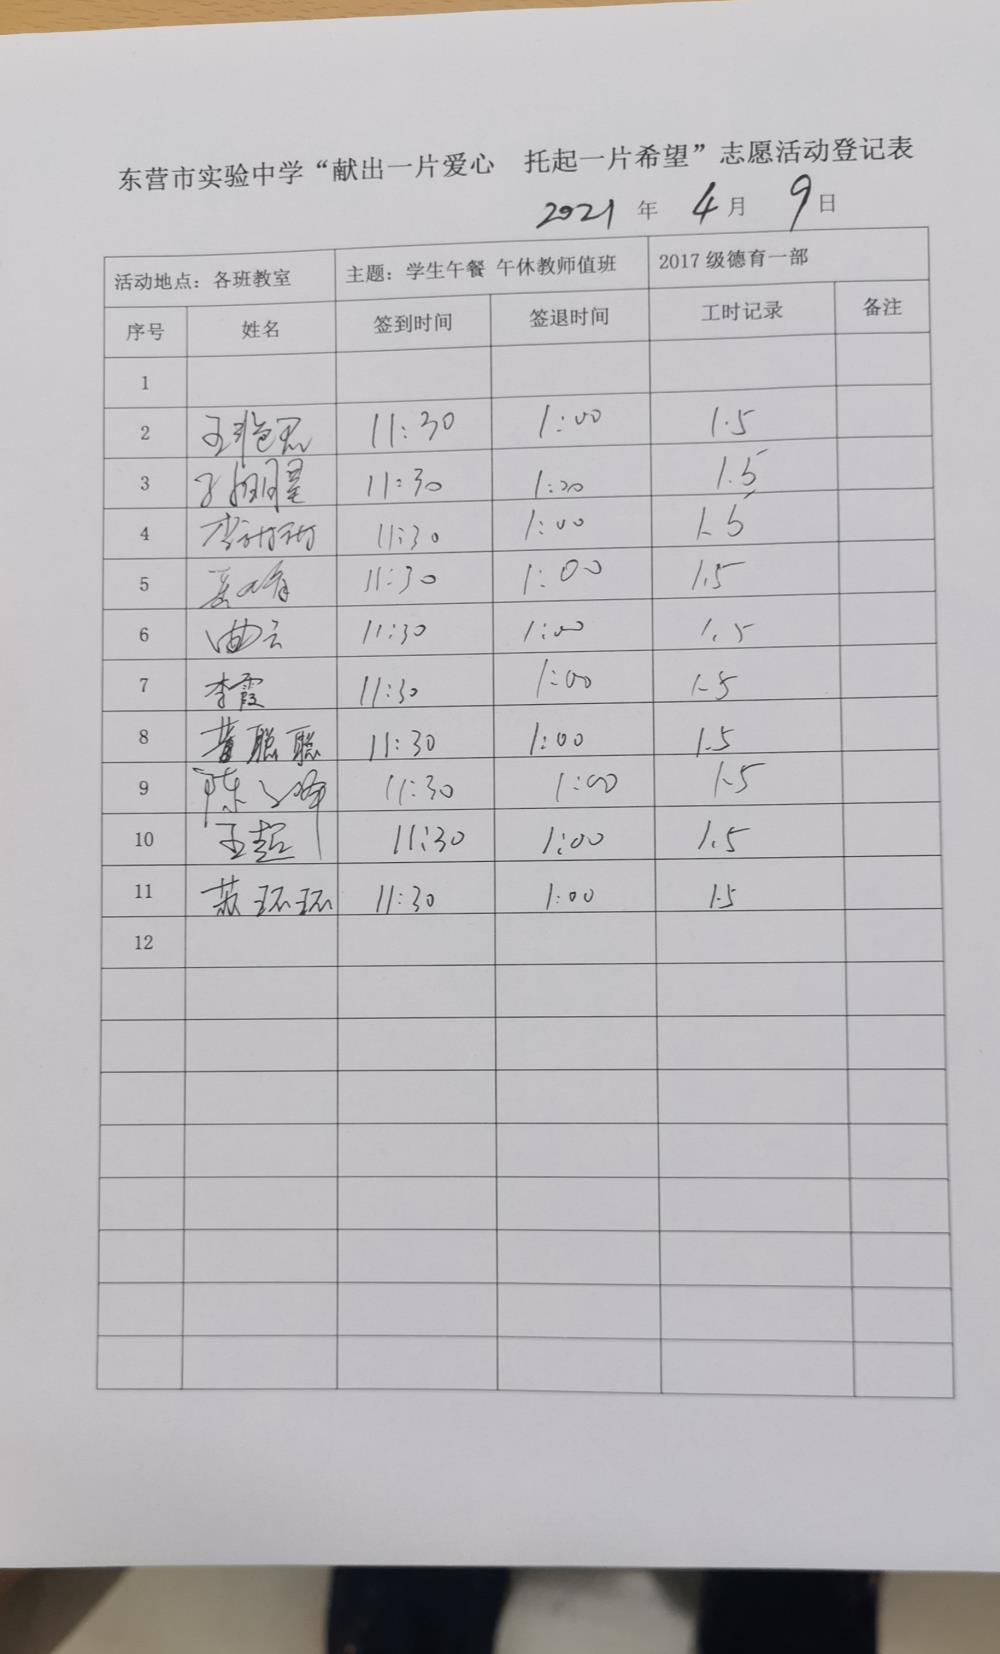 东营市实验中学“献出一片爱心 托起一片希望”志愿活动登记表
2021 年 4 月 9 日
活动地点：各班教室 主题：学生午餐 午休教师值班 2017 级德育一部
序号 姓名 签到时间 签退时间 工时记录 备注
1
2 11:30 1:00 1.5
3 11:30 1:00 1.5
4 李甜甜 11:30 1:00 1.5
5 11:30 1:00 1.5
6 曲云 11:30 1:00 1.5
7 李霞 11:30 1:00 1.5
8 黄聪聪 11:30 1:00 1.5
9 陈 11:30 1:00 1.5
10 王超 11:30 1:00 1.5
11 苏环环 11:30 1:00 1.5
12